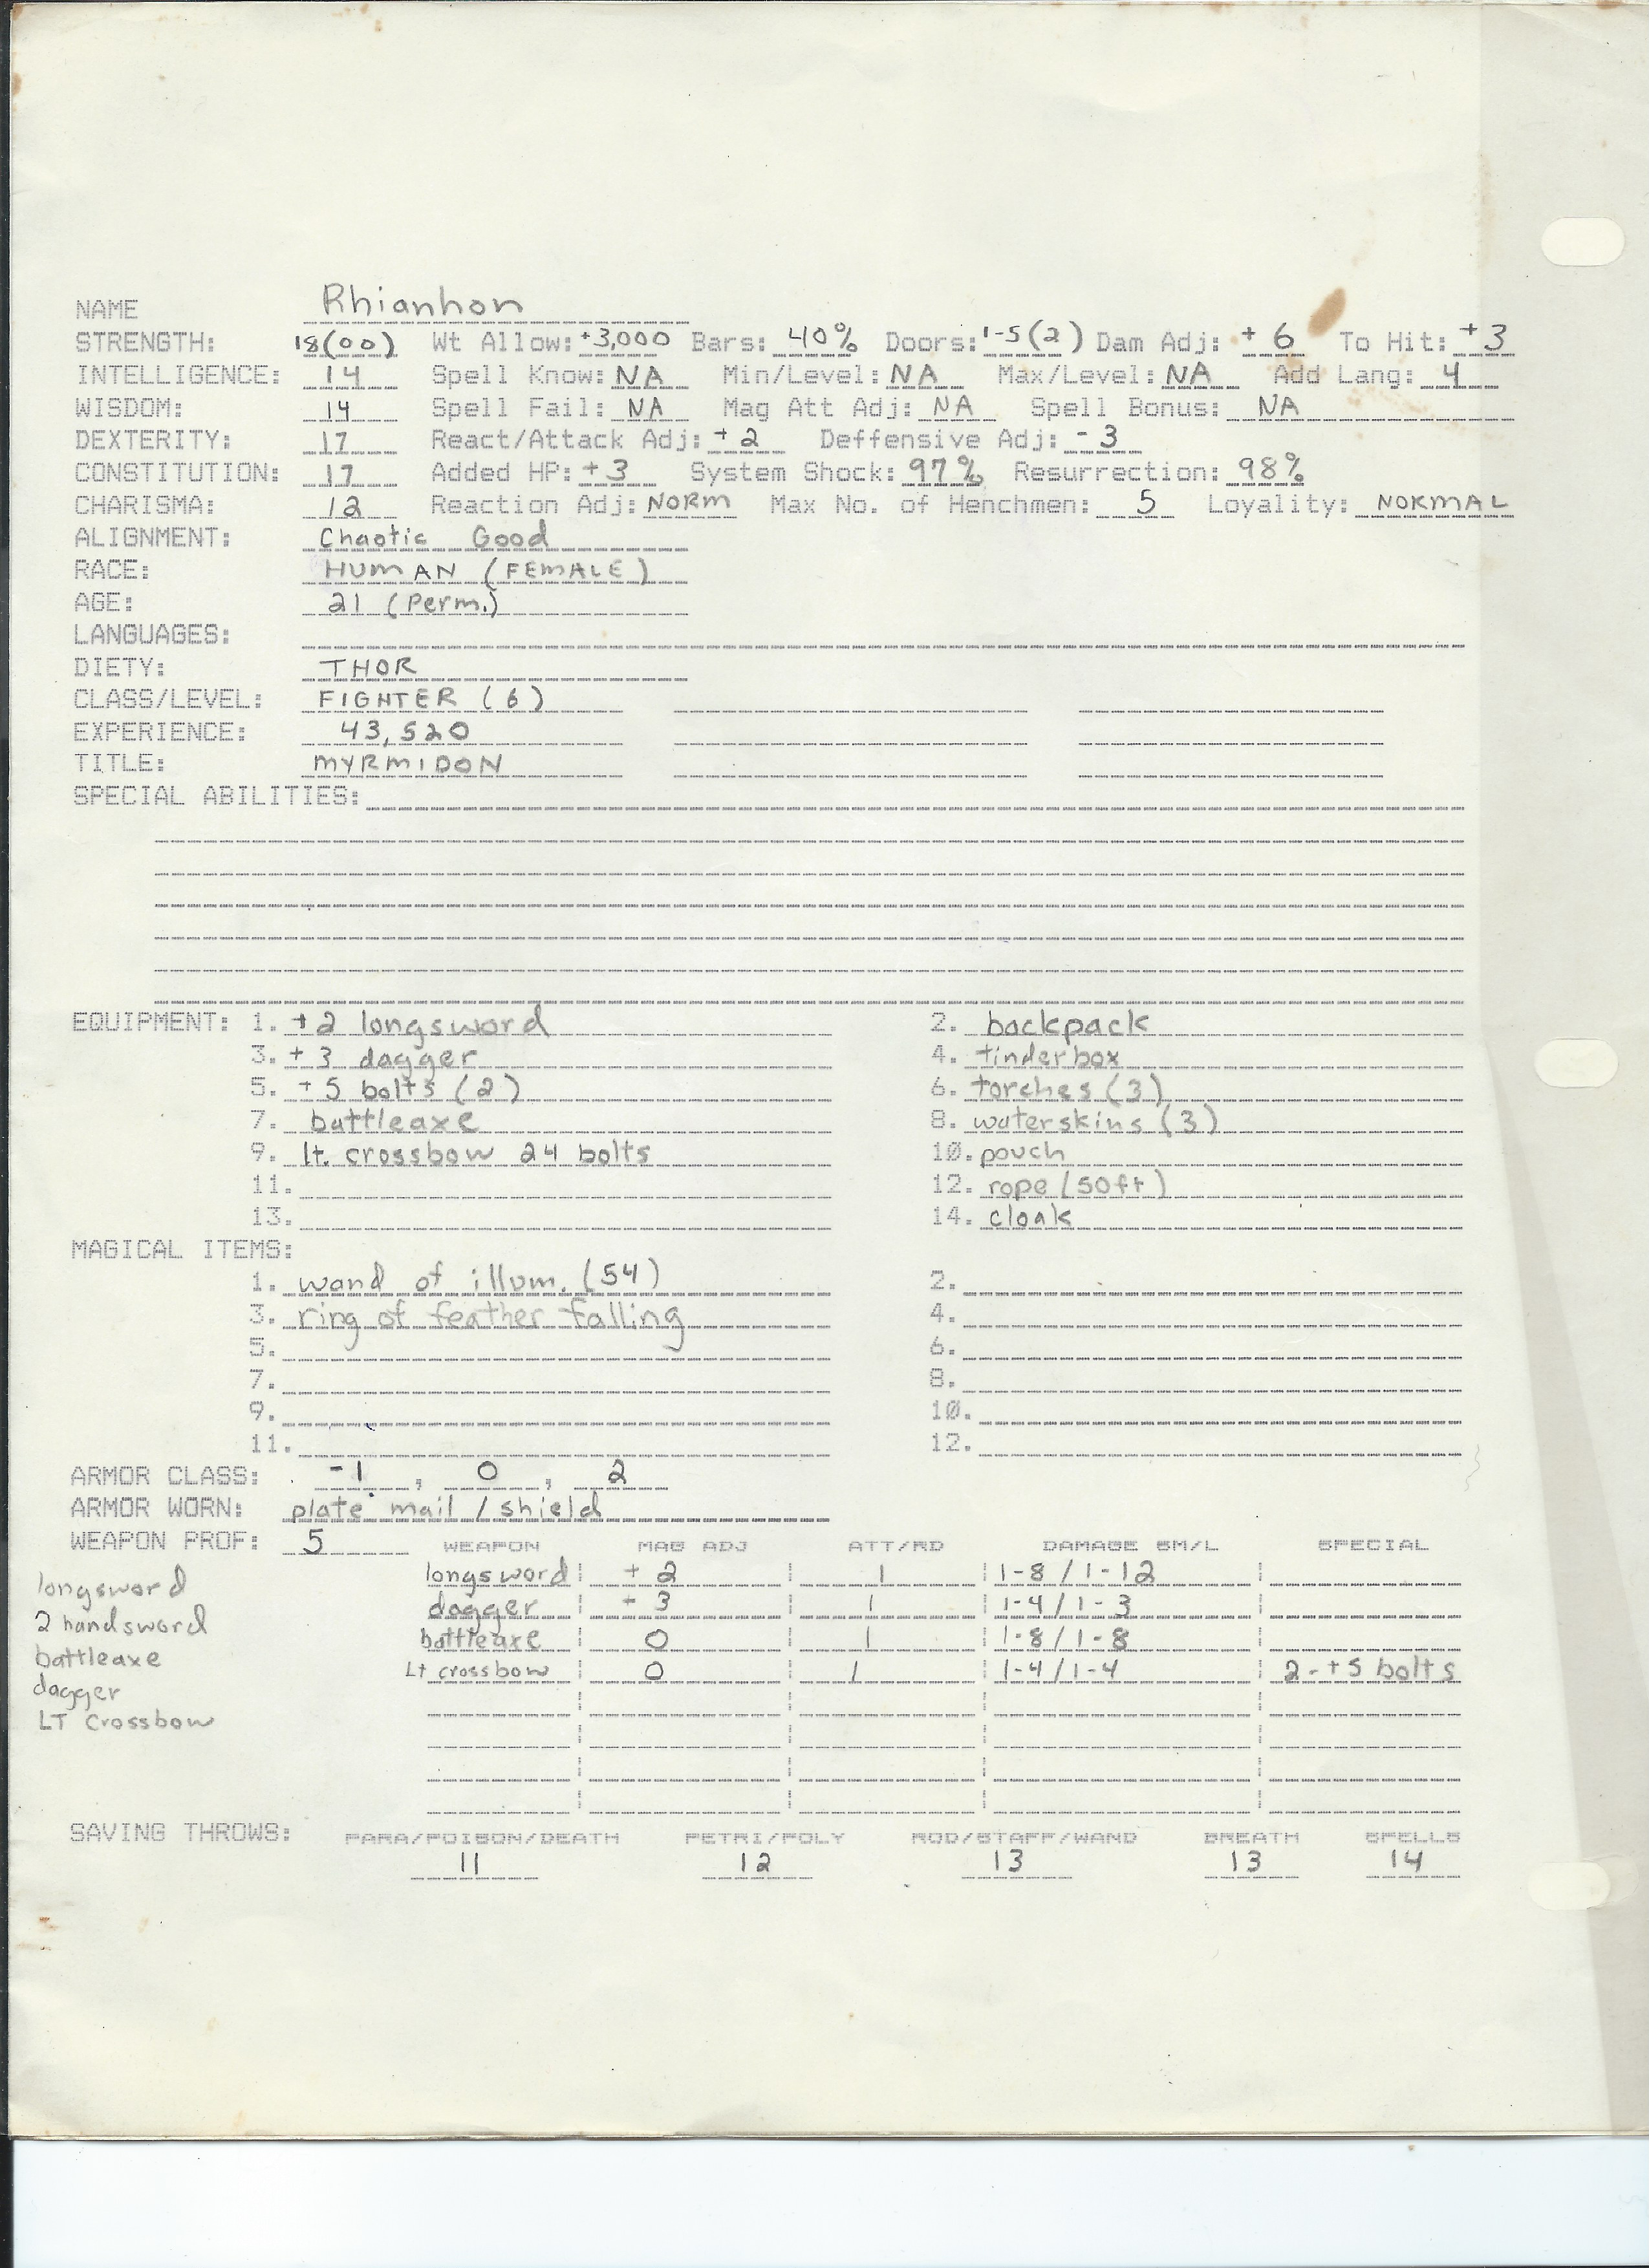 NAME Rhianhon
STRENGTH: 18(00) Wt Allow: +3,000 Bars: 40% Doors: 1-5(2) Dam Adj: +6 To Hit: +3
INTELLIGENCE: 14 Spell Know: NA Min/Level: NA Max/Level: NA Add Lang: 4
WISDOM: 14 Spell Fail: NA Mag Att Adj: NA Spell Bonus: NA
DEXTERITY: 17 React/Attack Adj: +2 Deffensive Adj: -3
CONSTITUTION: 17 Added HP: +3 System Shock: 97% Resurrection: 98%
CHARISMA: 12 Reaction Adj: NORM Max No. of Henchmen: 5 Loyality: NORMAL
ALIGNMENT: Chaotic Good
RACE: HUMAN (FEMALE)
AGE: 21 (Perm.)
LANGUAGES:
DIETY: THOR
CLASS/LEVEL: FIGHTER (6)
EXPERIENCE: 43,520
TITLE: MYRMIDON
SPECIAL ABILITIES:
EQUIPMENT: 1. +2 longsword 2. backpack
3. +3 dagger 4. tinderbox
5. +5 bolts (2) 6. torches (3)
7. battleaxe 8. waterskins (3)
9. lt. crossbow 24 bolts 10. pouch
11. 12. rope (50ft)
13. 14. cloak
MAGICAL ITEMS:
1. wand of illum. (54) 2.
3. ring of feather falling 4.
5. 6.
7. 8.
9. 10.
11. 12.
ARMOR CLASS: -1 , 0 , 2
ARMOR WORN: plate mail / shield
WEAPON PROF: 5 WEAPON MAG ADJ ATT/RD DAMAGE SM/L SPECIAL
longsword longsword +2 1 1-8 / 1-12
2 handsword dagger - 3 1 1-4 / 1-3
battleaxe battleaxe 0 1 1-8 / 1-8
dagger Lt crossbow 0 1 1-4 / 1-4 2-+5 bolts
LT Crossbow
SAVING THROWS: PARA/POISON/DEATH PETRI/POLY ROD/STAFF/WAND BREATH SPELLS
11 12 13 13 14